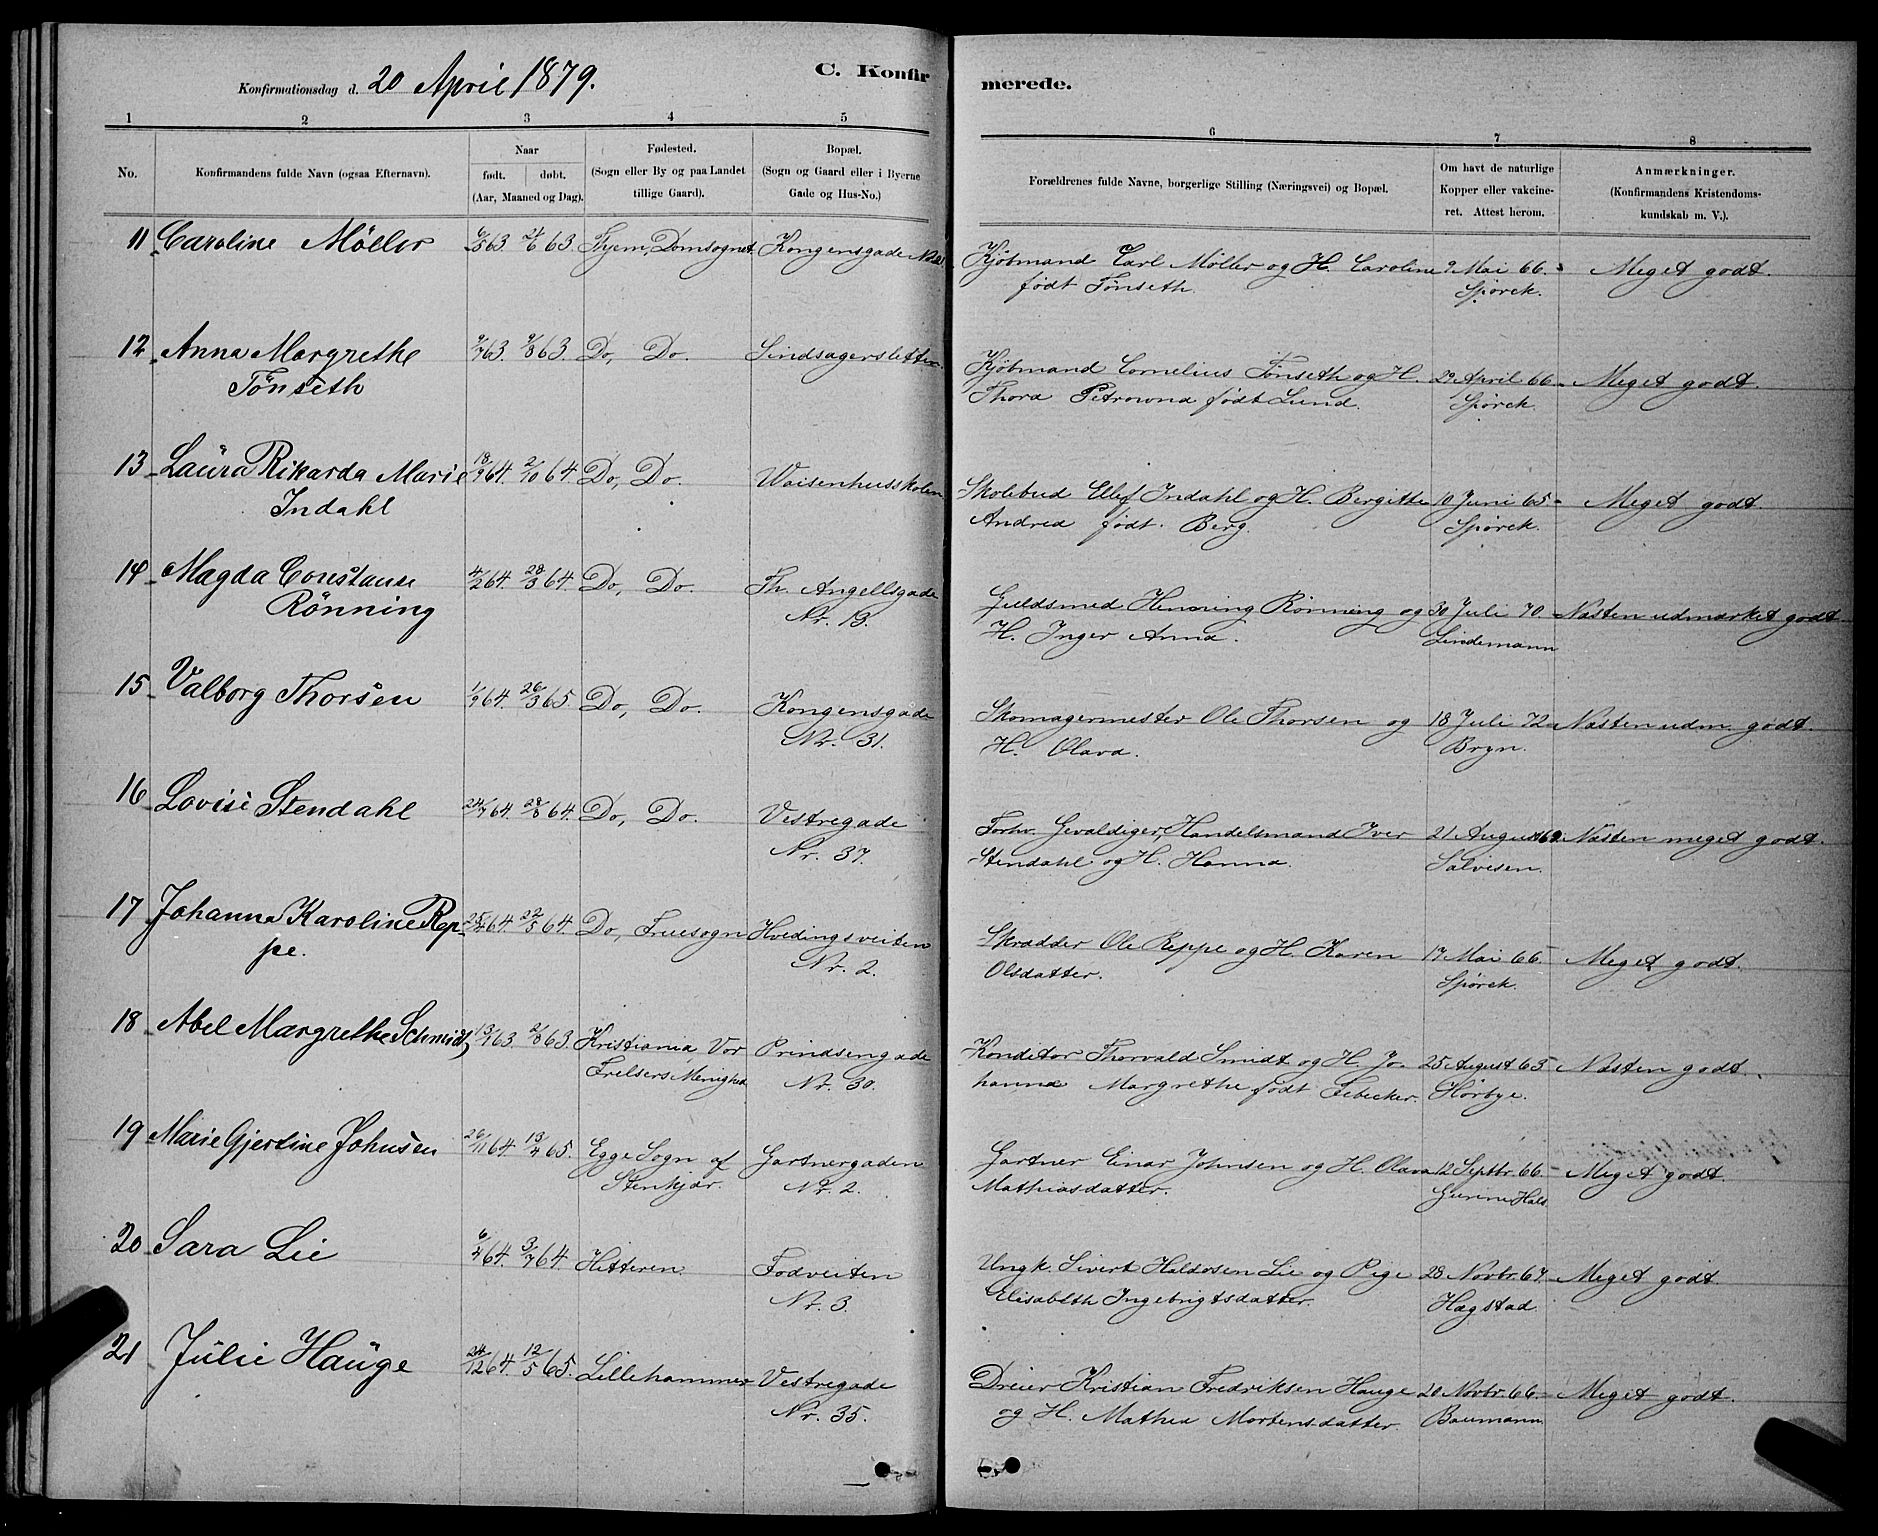 Konfirmationsdag d. 20 April 1879.
C. Konfirmerede.
1 2 3 4 5 6 7 8
No. Konfirmandens fulde Navn (ogsaa Efternavn). Naar født. døbt. (Aar, Maaned og Dag). Fødested. (Sogn eller By og paa Landet tillige Gaard). Bopæl. (Sogn og Gaard eller i Byerne Gade og Hus-No.) Forældrenes fulde Navne, borgerlige Stilling (Næringsvei) og Bopæl. Om havt de naturlige Kopper eller vakcineret. Attest herom. Anmærkninger. (Konfirmandens Kristendomskundskab m. V.).
11 Caroline Möller 63. 24/6 63. Domsognet Kongensgade Kjøbmand Carl Møller og H. Caroline 9 Mai 66. Meget godt.
født Tønseth. Spörck.
12 Anna Margrethe 9/7 63. 9/8 63. Do, Do. Kjøbmand Cornelius Tønseth og H. 29 April 66. Meget godt.
Tönseth Thora Petrowna født Lund. Spörck.
13 Laura Rikarda Marie 18/9 64. 2/10 64. Do, Do. Waisenhusskolen Skolebud Ellef Indahl og H. Bergitte 10 Juni 65. Meget godt.
Indahl Andrea født Berg. Spörck.
14 Magda Constanse 4/2 64. 28/3 64. Do, Do. Th. Angellsgade Guldsmed Henning Rönning og 30 Juli 70. Næsten udmærket godt
Rönning Nr. 13. H. Inger Anna. Lindemann
15 Valborg Thorsen 1/9 64. 26/3 65. Do, Do. Kongensgade Skomagermester Ole Thorsen og 18 Juli 72 Næsten udm. godt.
Nr. 31. H. Olava. Bryn.
16 Lovise Stendahl 24/7 64. 28/8 64. Do, Do. Vestregade Forhv. Gevaldiger, Handelsmand Iver 21 August 69. Næsten meget godt.
Nr. 37. Stendahl og H. Hanna. Salvesen.
17 Johanna Karoline Rep- 25/4 64. 22/5 64. Do, Fruesogn Hvedingsveiten Skrædder Ole Reppe og H. Karen 17 Mai 66 Meget godt.
pe. Nr. 2. Olsdatter. Spörck.
18 Abel Margrethe Schmidt 63. 2/8 63. Kristiania, Vor Prindsengade Konditor Thorvald Smidt og H. Jo- 25 August 65 Næsten godt.
Frelsers Menighed Nr. 30. hanna Margrethe født Febecker. Hörbye.
19 Marie Gjertine Johnsen 26/11 64. 13/4 65. Egge Sogn af Gartnergaden Gartner Einar Johnsen og H. Olava 12 Septbr. 66. Meget godt.
Stenkjær. Nr. 2. Mathiasdatter. Gurine Hals
20 Sara Lie 6/4 64. 3/7 64. Hitteren Fodveiten Ungk. Sivert Haldosen Lie og Pige 28 Novbr. 67. Meget godt
Nr. 3. Elisabeth Ingebrigtsdatter. Hægstad
21 Julie Hauge 24/12 64. 12/5 65. Lillehammer Vestregade Dreier Kristian Fredriksen Hauge 20 Novbr. 66. Meget godt.
Nr. 35. og H. Mathea Mortensdatter. Baumann.